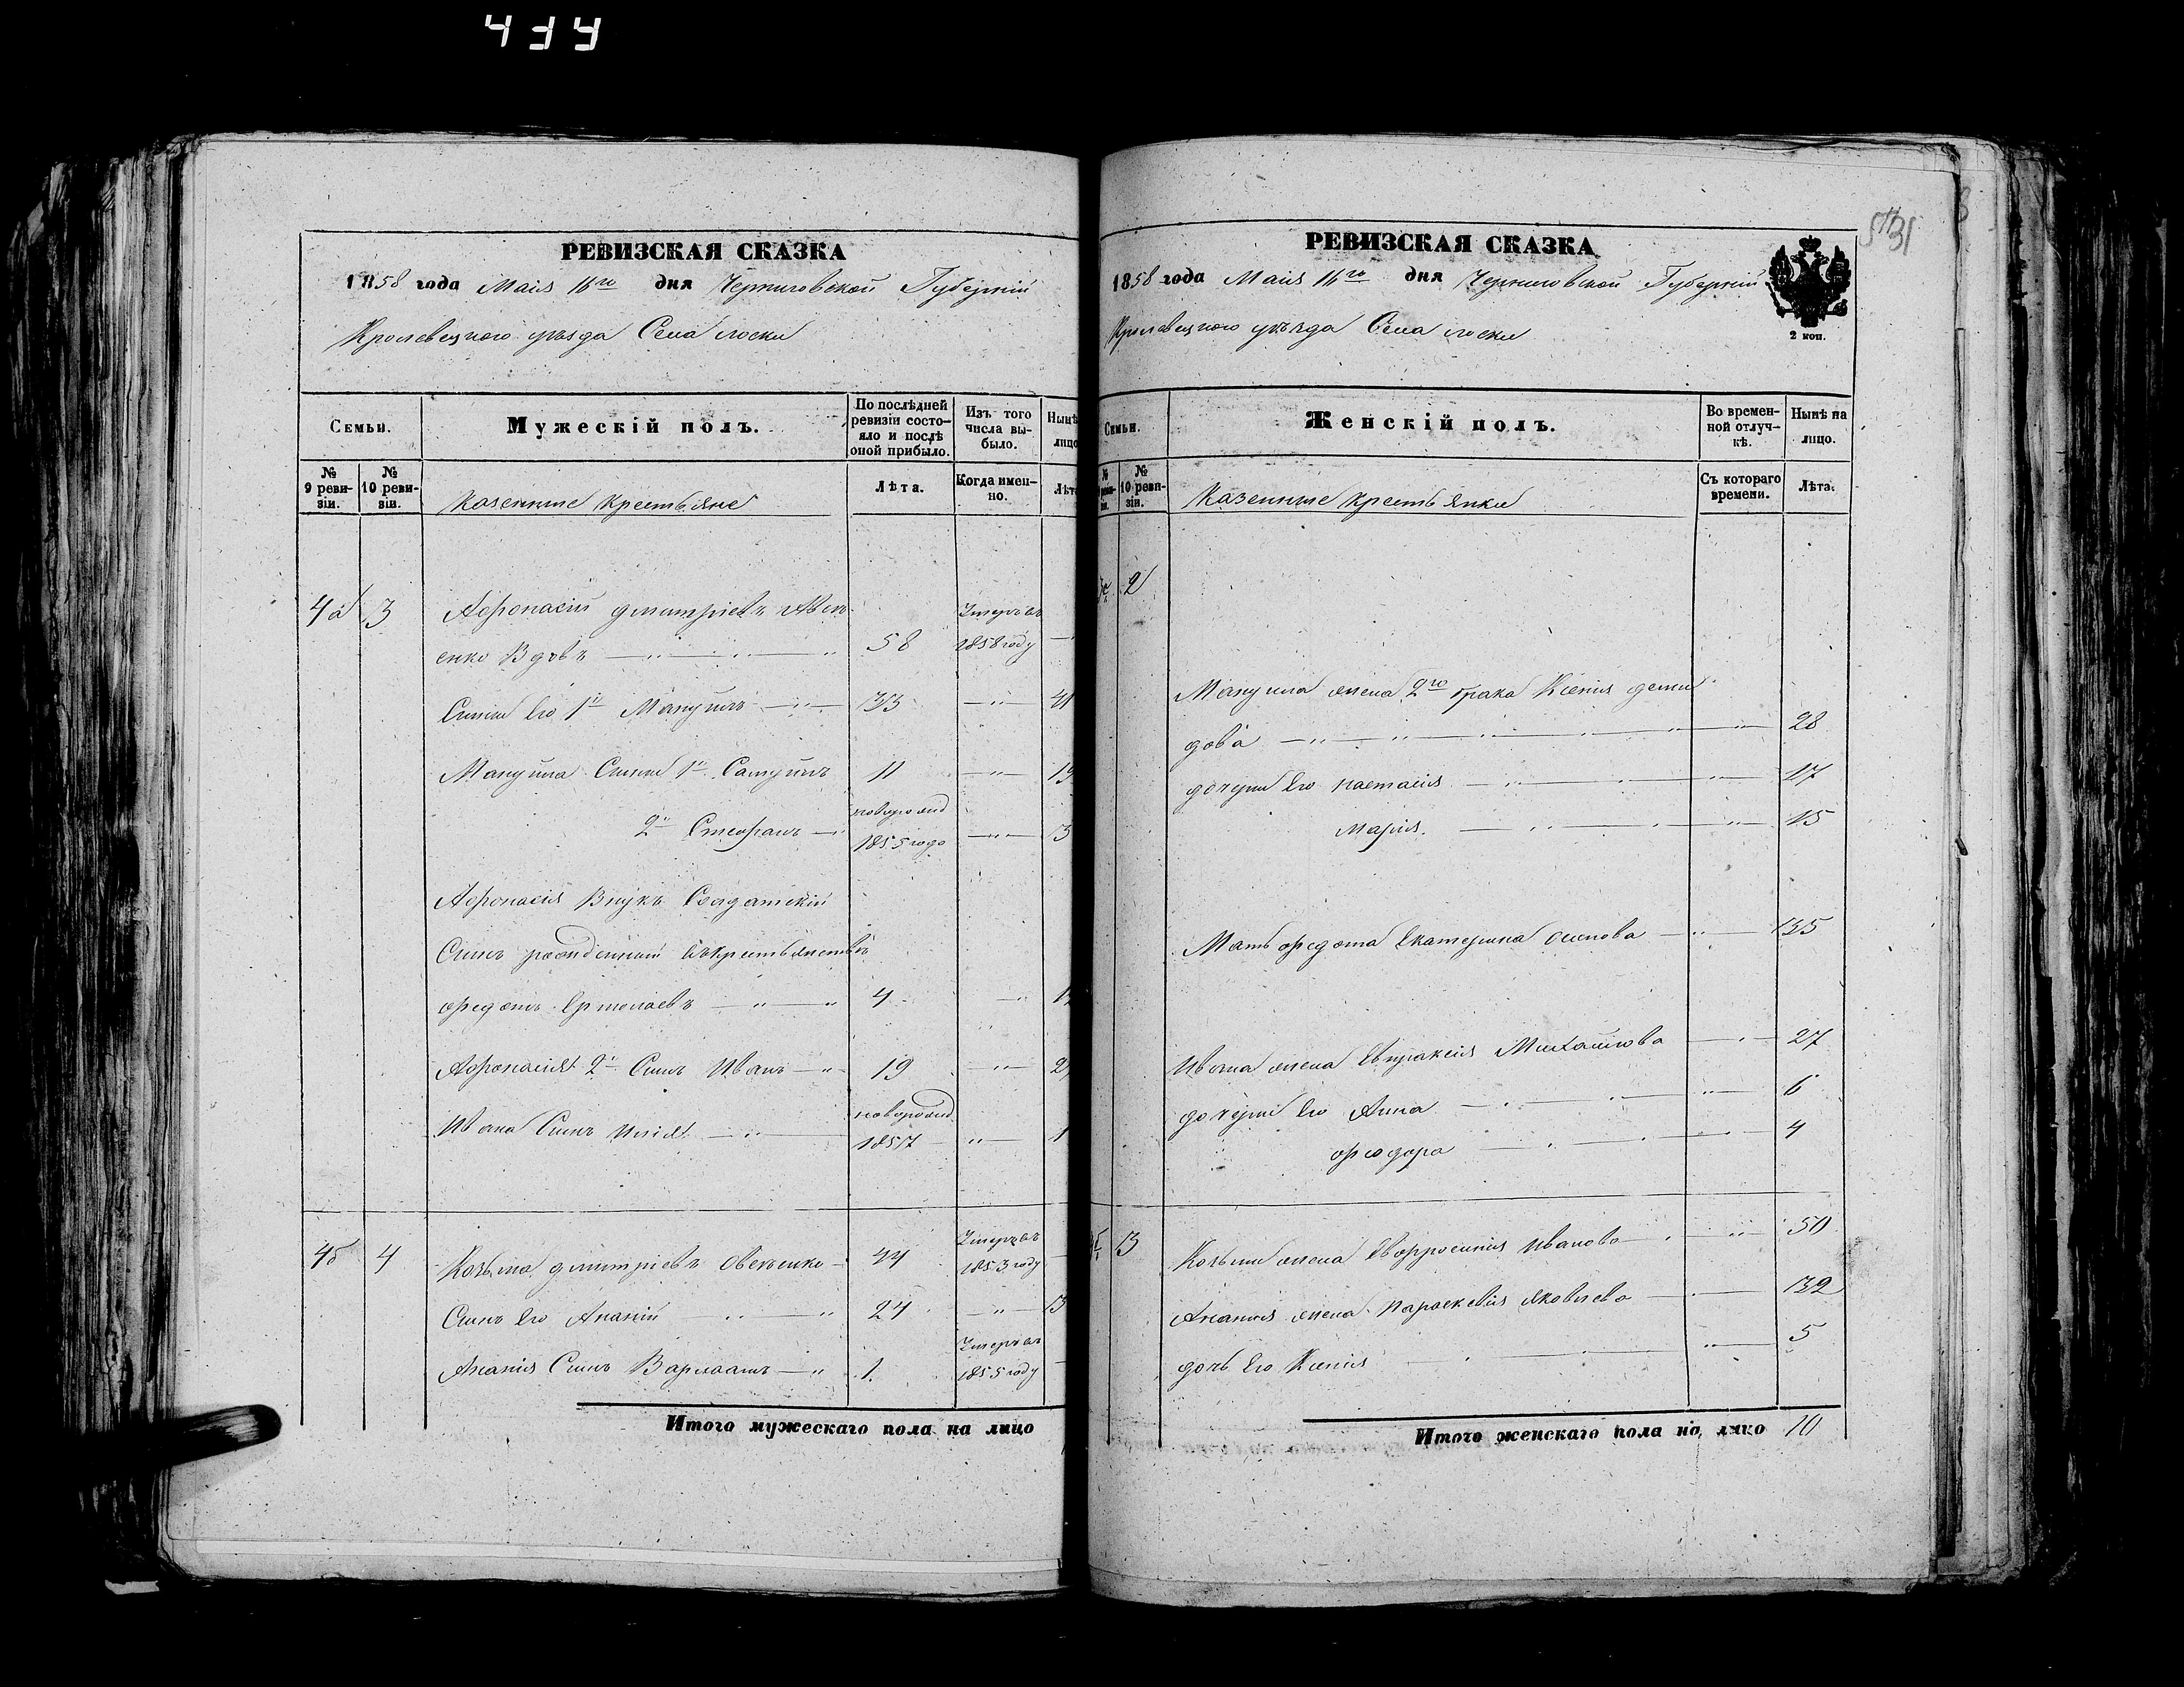 434
РЕВИЗСКАЯ СКАЗКА
1858 года Маія 16го дня Черниговской Губерніи
Кролевецкого уѣзда Села лоски
Семьи.
Мужескій полъ.
По послѣдней ревизіи состояло и послѣ оной прибыло.
Изъ того числа выбыло.
Нынѣ лицо
№ 9 ревизіи.
№ 10 ревизіи.
казенные крестьяне
Лѣта.
Когда именно.
Лѣта
4а 3 Афонасій дмитріевъ Авек
енко Вдовъ 58 Умеръ въ 1858 году
Сыны Его 1й Мануилъ 33 41
Мануила Сыны 1й Самуилъ 11 19
2й Стефанъ новорожд 1855 года 3
Афонасія Внукъ Солдатскій
Сынъ рожденный въ крестьянствѣ
федотъ Ермолаевъ 4
Афонасія 2й Сынъ Иванъ 19
Ивана Сынъ Илія новорожд 1857 1
4б 4 Козьма дмитріевъ Овекенко 44 Умеръ въ 1853 году
Сынъ Его Ананій 24
Ананія Сынъ Варлаамъ 1. Умеръ въ 1855 году
Итого мужескаго пола на лицо
РЕВИЗСКАЯ СКАЗКА
1858 года Маія 16го дня Черниговской Губерніи
Кролевецкого уѣзда Села лоски
2 коп.
Семьи.
Женскій полъ.
Во временной отлучкѣ.
Нынѣ на лицо.
№ 10 ревизіи.
казенные крестьянки
Съ котораго времени.
Лѣта.
2
Мануила жена 2го брака Ксенія деми
дова 28
дочери Его настасія 17
Марія. 15
Мать федота Екатерина Осипова 35
Ивана жена Евпраксія Михайлова 27
дочери Его Анна 6
феодора 4
3 Козьмы жена Евфросинія Иванова 50
Ананія жена Параскевія Яковлева 32
дочь Его Ксенія 5
Итого женскаго пола на лицо 10